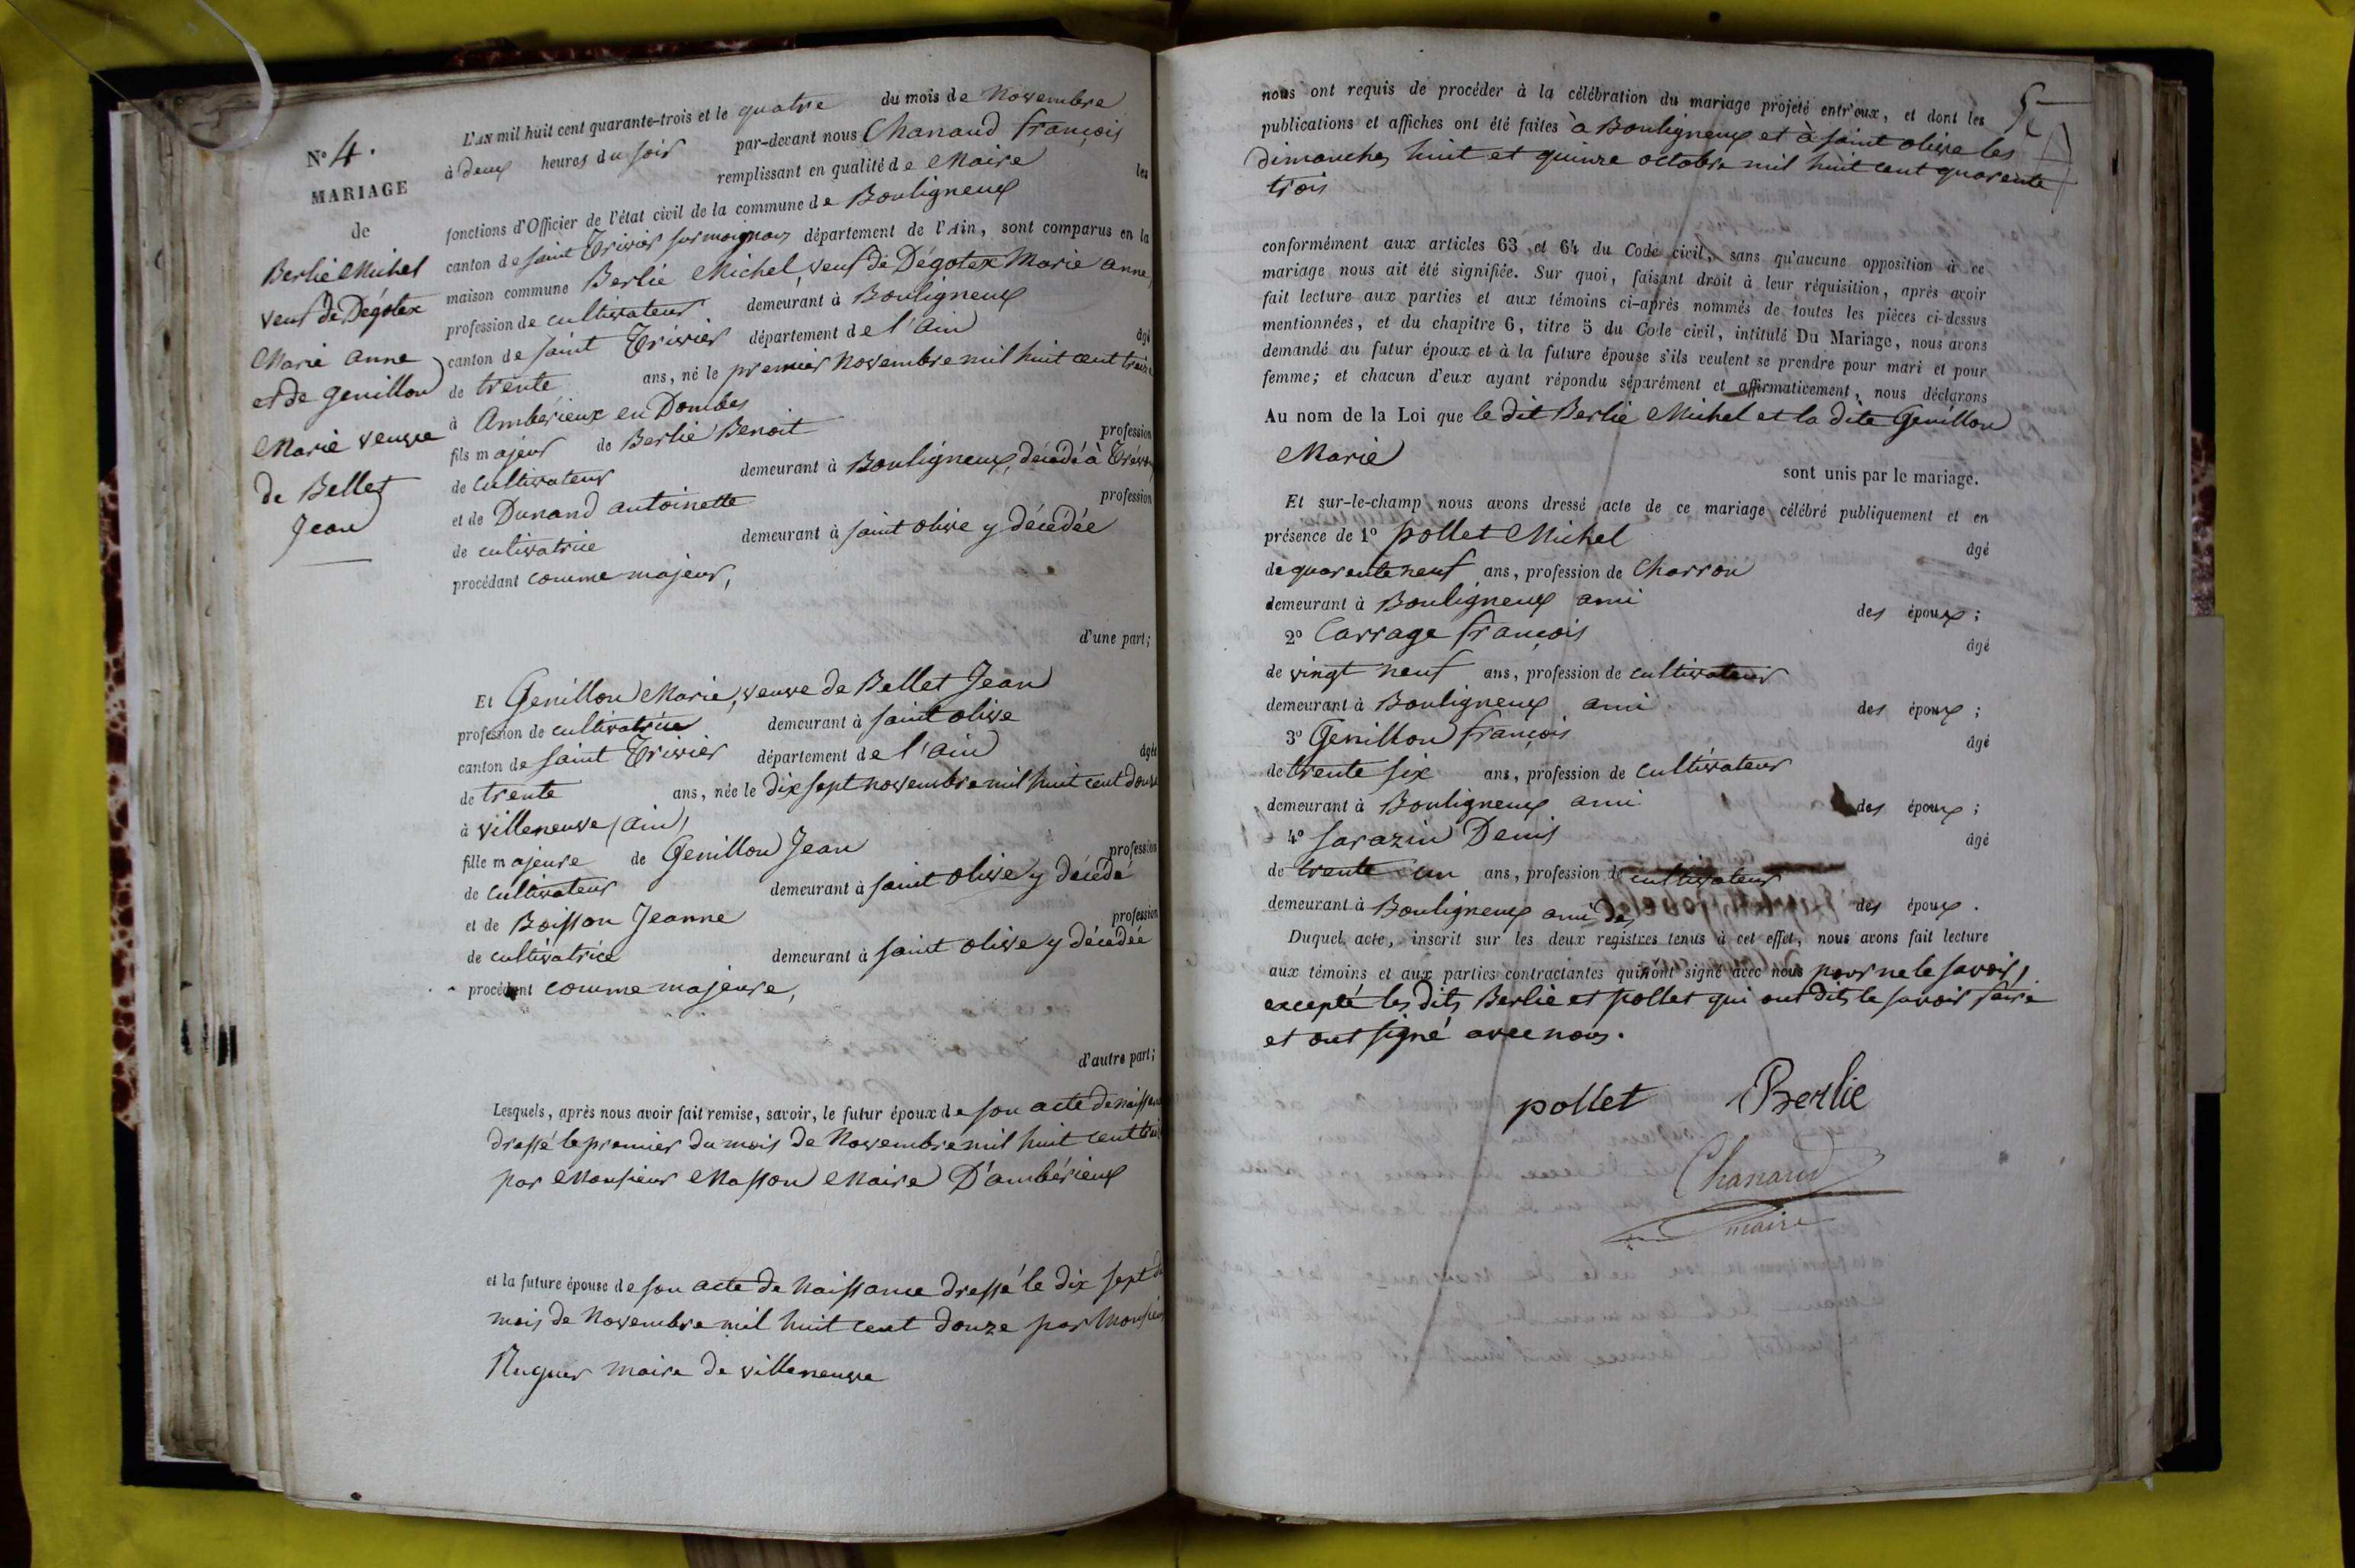 N° 4.
MARIAGE
de
Berlié Michel
veuf de Dégotex
Marie anne
et de Genillon
Marie veuve
de Bellet
Jean
L'an mil huit cent quarante-trois et le quatre du mois de Novembre
à deux heures du soir par-devant nous Chanaud françois
remplissant en qualité de Maire les
fonctions d'Officier de l'état civil de la commune de Bouligneux
canton de saint Trivier sur moignans département de l'Ain, sont comparus en la
maison commune Berlié Michel, veuf de Dégotex Marie anne,
profession de cultivateur demeurant à Bouligneux
canton de saint Trivier département de l'ain âgé
de trente ans, né le premier Novembre mil huit cent treize
à Ambérieux en Dombes
fils majeur de Berlié Benoit profession
de cultivateur demeurant à Bouligneux, décédé à Trévoux
et de Dunand antoinette profession
de cultivatrice demeurant à saint olive y décédée
procédant comme majeur,
d'une part;
Et Genillon Marie, veuve de Bellet Jean
profession de cultivatrice demeurant à saint olive
canton de saint Trivier département de l'ain âgée
de trente ans, née le dix sept novembre mil huit cent douze
à villeneuve (ain)
fille majeure de Genillon Jean profession
de cultivateur demeurant à saint olive y décédé
et de Boisson Jeanne profession
de cultivatrice demeurant à saint olive y décédée
procédant comme majeure,
d'autre part;
Lesquels, après nous avoir fait remise, savoir, le futur époux de son acte de naissance
dressé le premier du mois de Novembre mil huit cent treize
par Monsieur Masson Maire D'ambérieux
et la future épouse de son acte de Naissance dressé le dix sept du
mois de Novembre mil huit cent douze par Monsieur
maire de villeneuve
5
nous ont requis de procéder à la célébration du mariage projeté entr'eux, et dont les
publications et affiches ont été faites à Bouligneux et à saint olive les
dimanches huit et quinze octobre mil huit cent quarente
trois
conformément aux articles 63 et 64 du Code civil, sans qu'aucune opposition à ce
mariage nous ait été signifiée. Sur quoi, faisant droit à leur réquisition, après avoir
fait lecture aux parties et aux témoins ci-après nommés de toutes les pièces ci-dessus
mentionnées, et du chapitre 6, titre 5 du Code civil, intitulé Du Mariage, nous avons
demandé au futur époux et à la future épouse s'ils veulent se prendre pour mari et pour
femme; et chacun d'eux ayant répondu séparément et affirmativement, nous déclarons
Au nom de la Loi que le dit Berlié Michel et la dite Genillon
Marie
sont unis par le mariage.
Et sur-le-champ nous avons dressé acte de ce mariage célébré publiquement et en
présence de 1° pollet Michel âgé
de quarente neuf ans, profession de Charron
demeurant à Bouligneux ami des époux;
2° Carrage françois âgé
de vingt neuf ans, profession de cultivateur
demeurant à Bouligneux ami des époux;
3° Genillon françois âgé
de trente six ans, profession de cultivateur
demeurant à Bouligneux ami des époux;
4° sarazin Denis âgé
de trente un ans, profession de cultivateur
demeurant à Bouligneux ami des des époux.
Duquel acte, inscrit sur les deux registres tenus à cet effet, nous avons fait lecture
aux témoins et aux parties contractantes qui n'ont signé avec nous pour ne le savoir,
excepté les dits Berlié et pollet qui ont dits le savoir faire
et ont signé avec nous.
pollet Berlie
Chanaud
maire